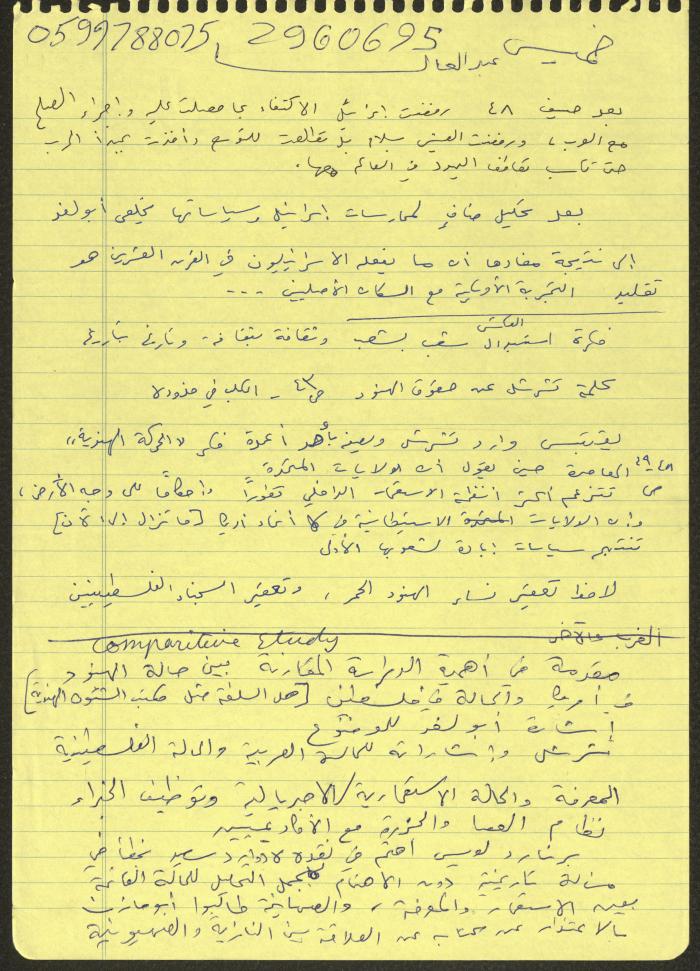 0599788075 2960695 خميس
عبدالعال
بعد صيف ٤٨ رفضت إسرائيل الاكتفاء بما حصلت عليه وإجراء الصلح
مع العرب، ورفضت العيش بسلام بل تطلعت للتوسع وأخذت بمبدأ الحرب
حتى تكسب تعاطف اليهود في العالم معها.
بعد تحليل ضافٍ لممارسات إسرائيل وسياساتها يخلص أبو لغد
إلى نتيجة مفادها أن ما يفعله الاسرائيليون في القرن العشرين هو
تقليد التجربة الأوربية مع السكان الأصليين ---
فكرة استبدال شعب بشعب وثقافة بثقافة وتاريخ بتاريخ
كلمة تشرشل عن حقوق الهنود ص ٤٣ - الكلب في مذوده
يقتبس وارد تشرشل وصفه بأحد أعمدة فكر «الحركة الهندية»
المعاصرة حين يقول أن الولايات المتحدة
ص ٤٨-٤٩
تتزعم أكثر أنظمة الاستعمار الداخلي تطوراً وإحكاماً على وجه الأرض،
وأن الولايات المتحدة الاستيطانية في أنحاء أمريكا [ما تزال إلى الآن]
تنتهج سياسات إبادة لشعوبها الأولى
لاحظ تعقيم نساء الهنود الحمر، وتعقيم السجناء الفلسطينيين
الغرب والآخر
Comparitive Study
مقدمة في أهمية الدراسة المقارنة بين حالة الهنود
في أمريكا والحالة في فلسطين [هل السلطة مثل مكتب الشئون الهندية]
إشارة أبو لغد للموضوع
تشرشل وإشاراته للحالة العربية والحالة الفلسطينية
المعرفة والحالة الاستعمارية/الامبريالية وتوظيف الخبراء
نظام العصا والجزرة مع الأكاديميين
برنارد لويس اهتم في نقده لادوارد سعيد بخطأ في
مسألة تاريخية دون الاهتمام بمجمل التحليل للحالة القائمة
بين الاستعمار والمعرفة، والصهاينة طالبوا أبو مازن
بالاعتذار عن كتابه عن العلاقة بين النازية والصهيونية